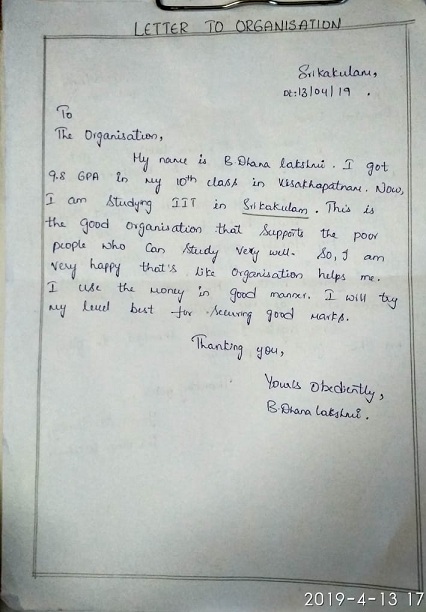 LETTER TO ORGANISATION
Srikakulam,
Dt:13/04/19 .
To
The Organisation,
My name is B.Dhana lakshmi. I got
9.8 GPA in my 10th class in Visakhapatnam. Now,
I am studying IIT in Srikakulam. This is
the good organisation that supports the poor
people who can study very well. So, I am
very happy that's like organisation helps me.
I use the money in good manner. I will try
my level best for securing good marks.
Thanking you,
Yours Obediently,
B.Dhana lakshmi.
2019-4-13 17